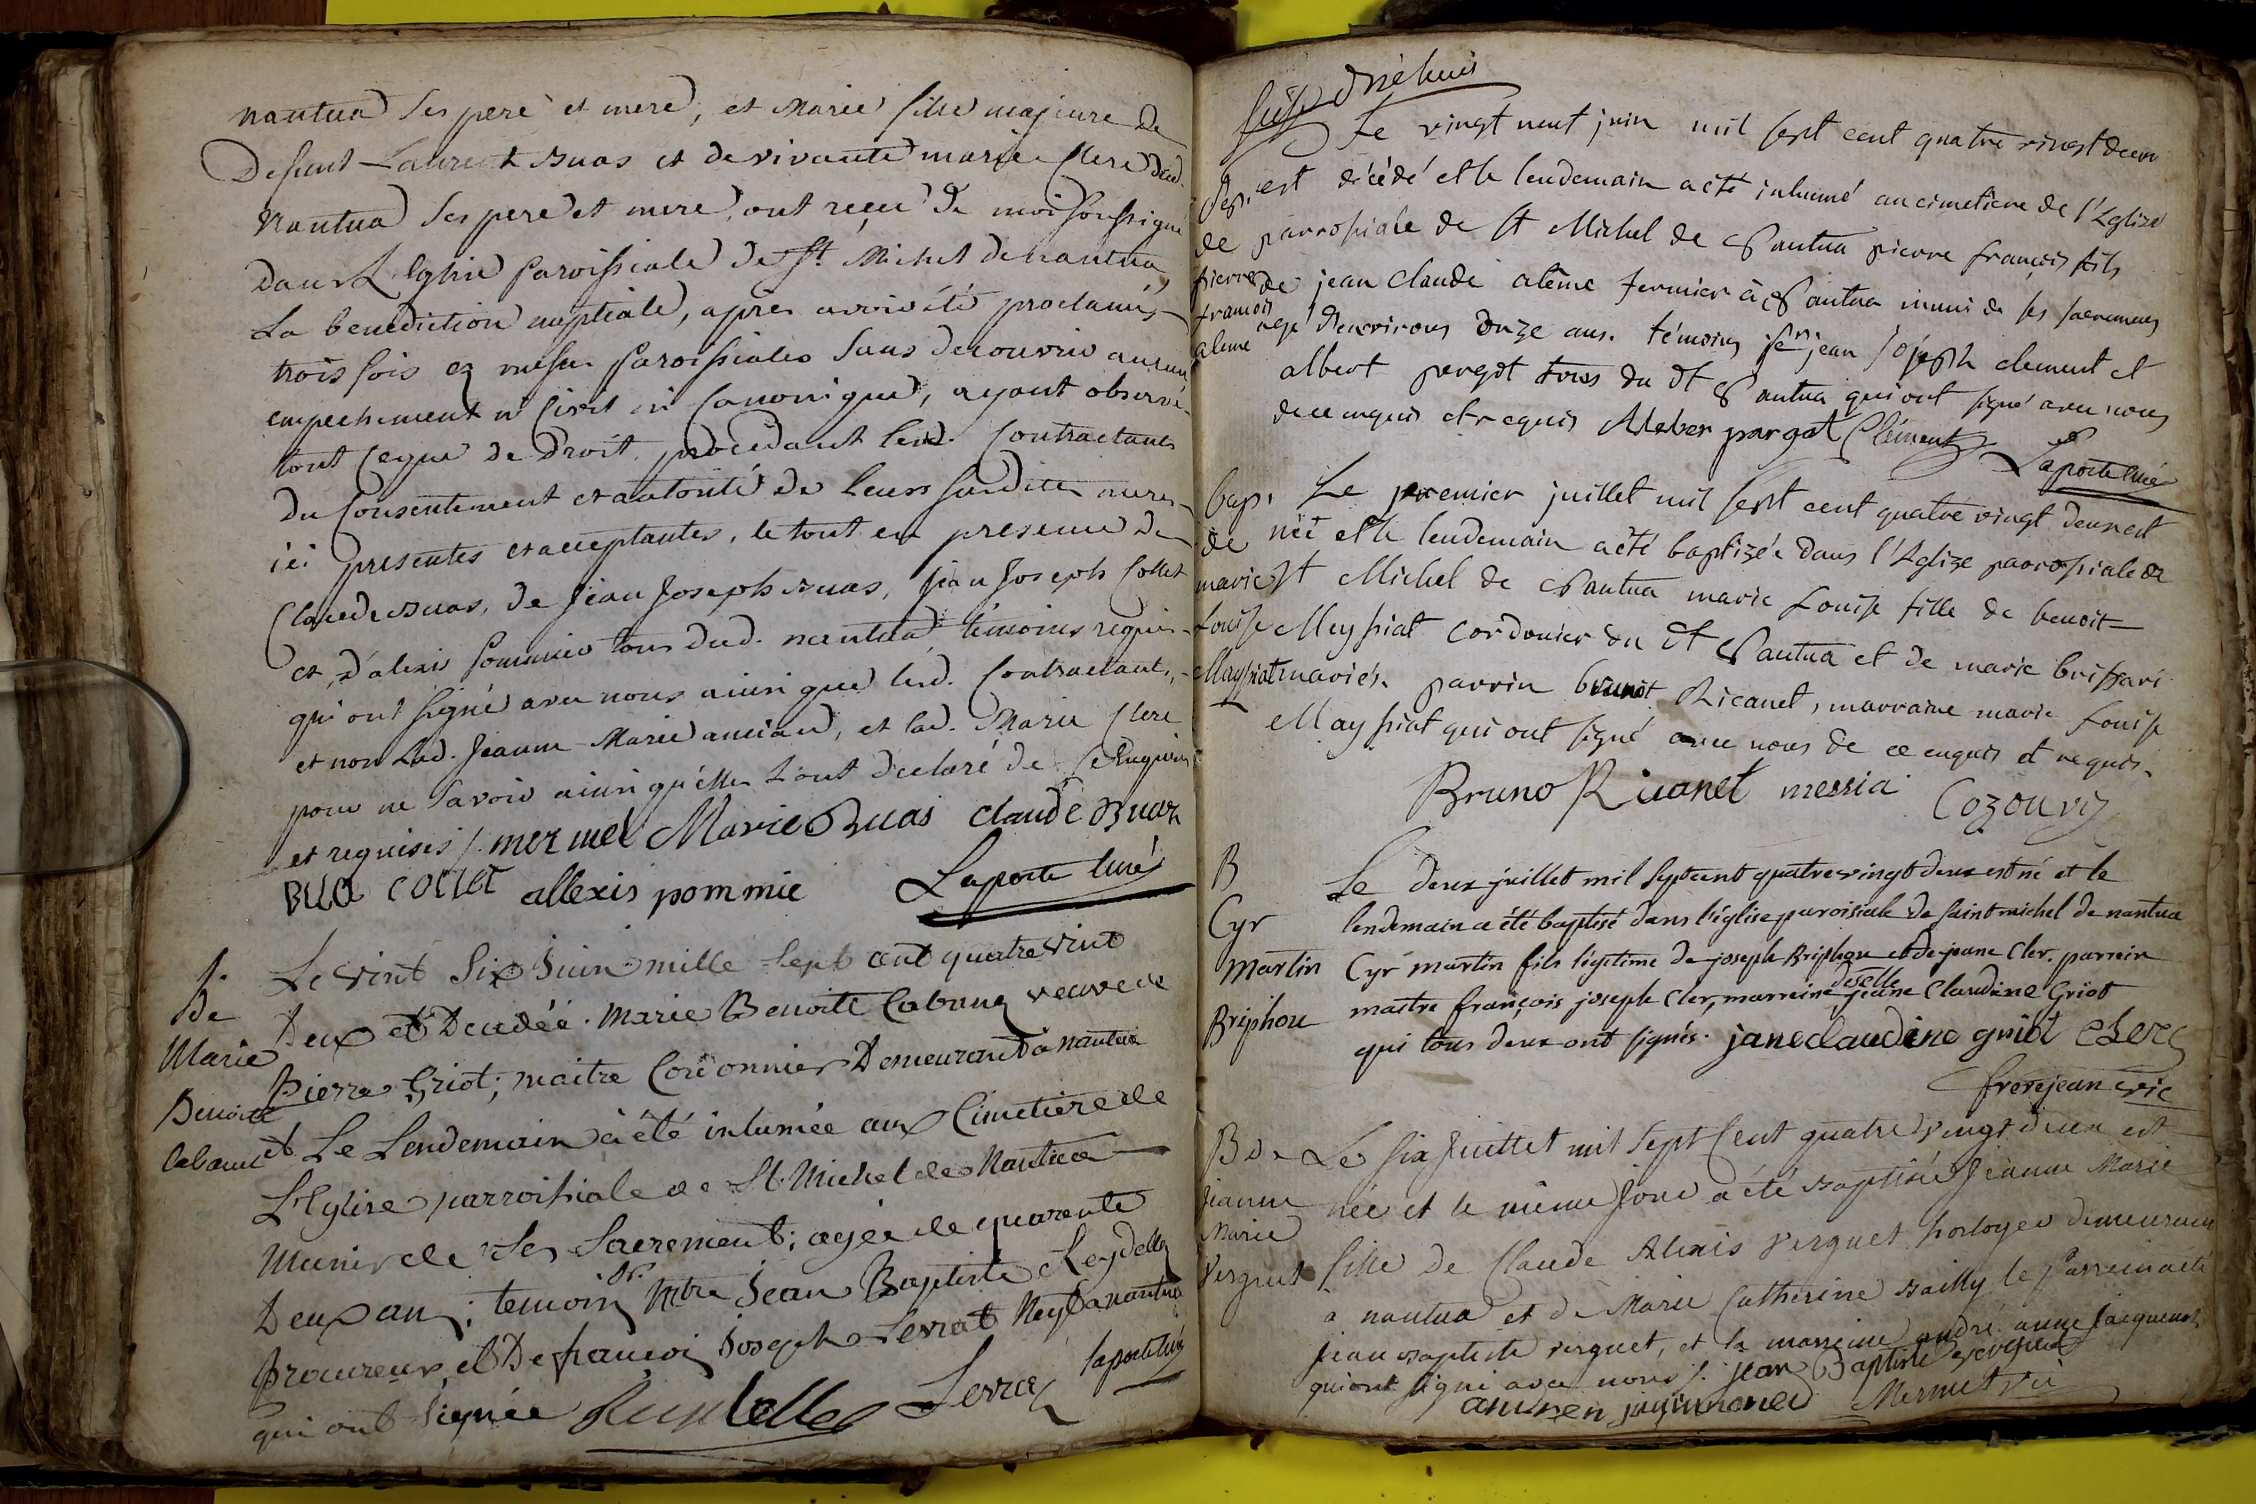 nantua ses pere et mere, et Marie fille majeure de
Defunt Laurent Buas et de vivante marie Clerc dud.
Nantua ses pere et mere, ont reçu de moi soussigné
dans L'Eglise paroissiale de St. Michel de nantua
La benediction nuptiale, apres avoir été proclamés
trois fois ez messes paroissiales sans decouvrir aucun
empechement ni Civil ni Canonique, ayant observé
tout ce que de droit, procedant lesd. Contractants
du Consentement et autorité de leurs susdites meres
ici presentes et acceptantes, le tout en presence de
Claude Buas, de Jean Joseph Buas, Jean Joseph Collet
et d'alexis pommier tous dud. nantua témoins requis
qui ont signé avec nous ainsi que lesd. Contractants,
et non lad. Jeanne Marie, et lad. Marie Clerc
pour ne savoir ainsi qu'elles l'ont declaré de ce Enquises
et requises /. mermet Marie Buas claude Buaz
Bua collet allexis pommie Laporte Curé
Le vint six Juin mille sept cent quatre vint
De
Marie
Benoite
Deux et Decedée. Marie Benoite Cabanez veuve de
Pierre Griot; maitre Cordonnier Demeurant à nantua
et Le Lendemain a été inhumée aux Cimetiere de
L'Eglise parroissiale de St. Michel de Nantua
Munis de ses Sacrement; agée de quarante
Deux ans; temoin Mtre Jean Baptiste Reydellet
procureur et De francoi Joseph Levrat Neyt a nantua
qui ont signée Reydellet Levrat laporte curé
Le vingt neuf juin mil sept cent quatre vingt deux
Sep.
de
pierre
francois
aleme
est décédé et le lendemain a été inhumé au cimetiere de l'Eglize
parrossiale de St Michel de Nantua pierre françois fils
de jean claude alême fermier à Nantua muni de ses sacremens
agé d'environs onze ans. témoins sr jean joseph clement et
albert pergot tous du dt Nantua qui ont signé avec nous
de ce enquis et requis Aleber pargot Clément Laporte curé
bap.
de
marie
Louise
Mayssiat
Le premier juillet mil sept cent quatre vingt deux est
née et le lendemain a été baptizée dans l'Eglize parrossiale de
St Michel de Nantua marie Louise fille de benoit
Meyssiat cordonier du dt Nantua et de marie brissari
mariés. parrin brunot Ricanet, marraine marie Louise
Mayssiat qui ont signé avec nous de ce enquis et requis.
Bruno Ricanet messia Cozon vi
B
Cyr
martin
Briphou
Le deux juillet mil sept cent quatre vingt deux est né et le
lendemain a été baptisé dans l'église paroisiale de saint michel de nantua
Cyr martin fils légitime de joseph Briphou et de jeane Cler. parrein
maitre françois joseph Cler, marreine dselle jeane Claudine Griot
qui tous deux ont signés. jane claudine griot Clerc
frerejean vic
B de
Jeanne
Marie
Verguet
Le six Juillet mil sept Cent quatre vingt deux est
née et le même Jour a été Baptisée Jeanne Marie
fille de Claude Alexis verguet horloger demeurant
a nantua et de Marie Catherine Bailly le Parrein a été
Jean Baptiste verguet, et la marreine andré anne Jacquemet
qui ont signé avec nous /. Jean Baptiste verguet
Mermet vic